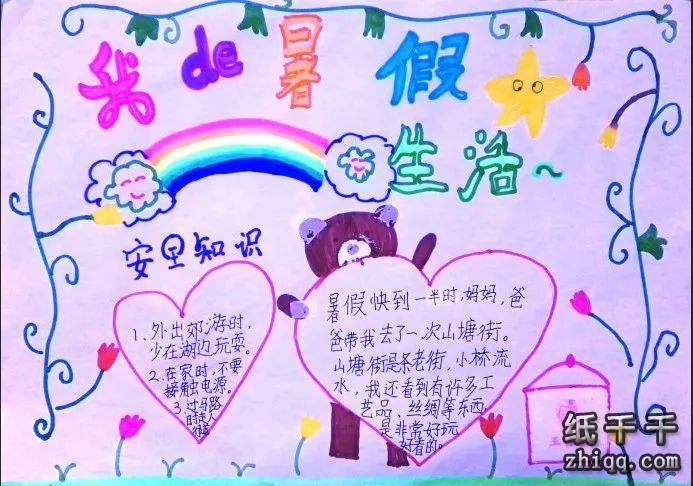 我de暑假
生活~
安里知识
1、外出郊游时,
少在湖边玩耍。
2、在家时,不要
接触电源。
3、过马路
时走人
暑假快到一半时,妈妈,爸
爸带我去了一次山塘街。
山塘街是条老街,小桥流
水,我还看到有许多工
艺品、丝绸等东西,
是非常好玩
好看的。
纸千千
zhiqq.com